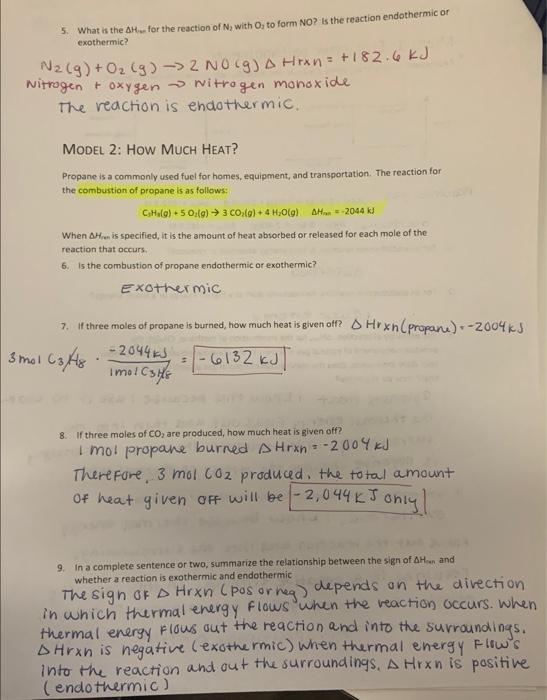 5. What is the ΔHrxn for the reaction of N₂ with O₂ to form NO? Is the reaction endothermic or
exothermic?
N2(g) + O2(g) → 2 NO(g) Δ Hrxn = +182.6 kJ
Nitrogen + oxygen → Nitrogen monoxide
The reaction is endothermic.
MODEL 2: HOW MUCH HEAT?
Propane is a commonly used fuel for homes, equipment, and transportation. The reaction for
the combustion of propane is as follows:
C₃H₈(g) + 5 O₂(g) → 3 CO₂(g) + 4 H₂O(g) ΔHrxn = -2044 kJ
When ΔHrxn is specified, it is the amount of heat absorbed or released for each mole of the
reaction that occurs.
6. Is the combustion of propane endothermic or exothermic?
Exothermic
7. If three moles of propane is burned, how much heat is given off? Δ Hrxn(propane) = -2004kJ
3 mol C3H8 · -2044kJ / 1mol C3H8 = -6132 kJ
8. If three moles of CO₂ are produced, how much heat is given off?
1 mol propane burned Δ Hrxn = -2004 kJ
Therefore, 3 mol CO2 produced, the total amount
of heat given off will be -2,044 kJ only
9. In a complete sentence or two, summarize the relationship between the sign of ΔHrxn and
whether a reaction is exothermic and endothermic
The sign of Δ Hrxn (pos or neg) depends on the direction
in which thermal energy flows when the reaction occurs. When
thermal energy flows out the reaction and into the surroundings.
Δ Hrxn is negative (exothermic) when thermal energy flow's
into the reaction and out the surroundings, Δ Hrxn is positive
(endothermic)